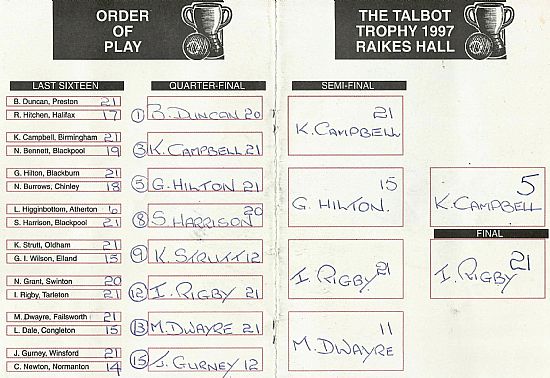 ORDER
OF
PLAY
THE TALBOT
TROPHY 1997
RAIKES HALL
LAST SIXTEEN
B. Duncan, Preston 21
R. Hitchen, Halifax 17
K. Campbell, Birmingham 21
N. Bennett, Blackpool 19
G. Hilton, Blackburn 21
N. Burrows, Chinley 18
L. Higginbottom, Atherton 6
S. Harrison, Blackpool 21
K. Strutt, Oldham 21
G. I. Wilson, Elland 15
N. Grant, Swinton 20
I. Rigby, Tarleton 21
M. Dwayre, Failsworth 21
L. Dale, Congleton 15
J. Gurney, Winsford 21
C. Newton, Normanton 14
QUARTER-FINAL
1 B. DUNCAN 20
3 K. CAMPBELL 21
5 G. HILTON 21
8 S. HARRISON 20
9 K. STRUTT 12
12 I. RIGBY 21
13 M. DWAYRE 21
15 J. GURNEY 12
SEMI-FINAL
K. CAMPBELL 21
G. HILTON. 15
I. RIGBY 21
M. DWAYRE 11
K. CAMPBELL 5
FINAL
I. RIGBY 21